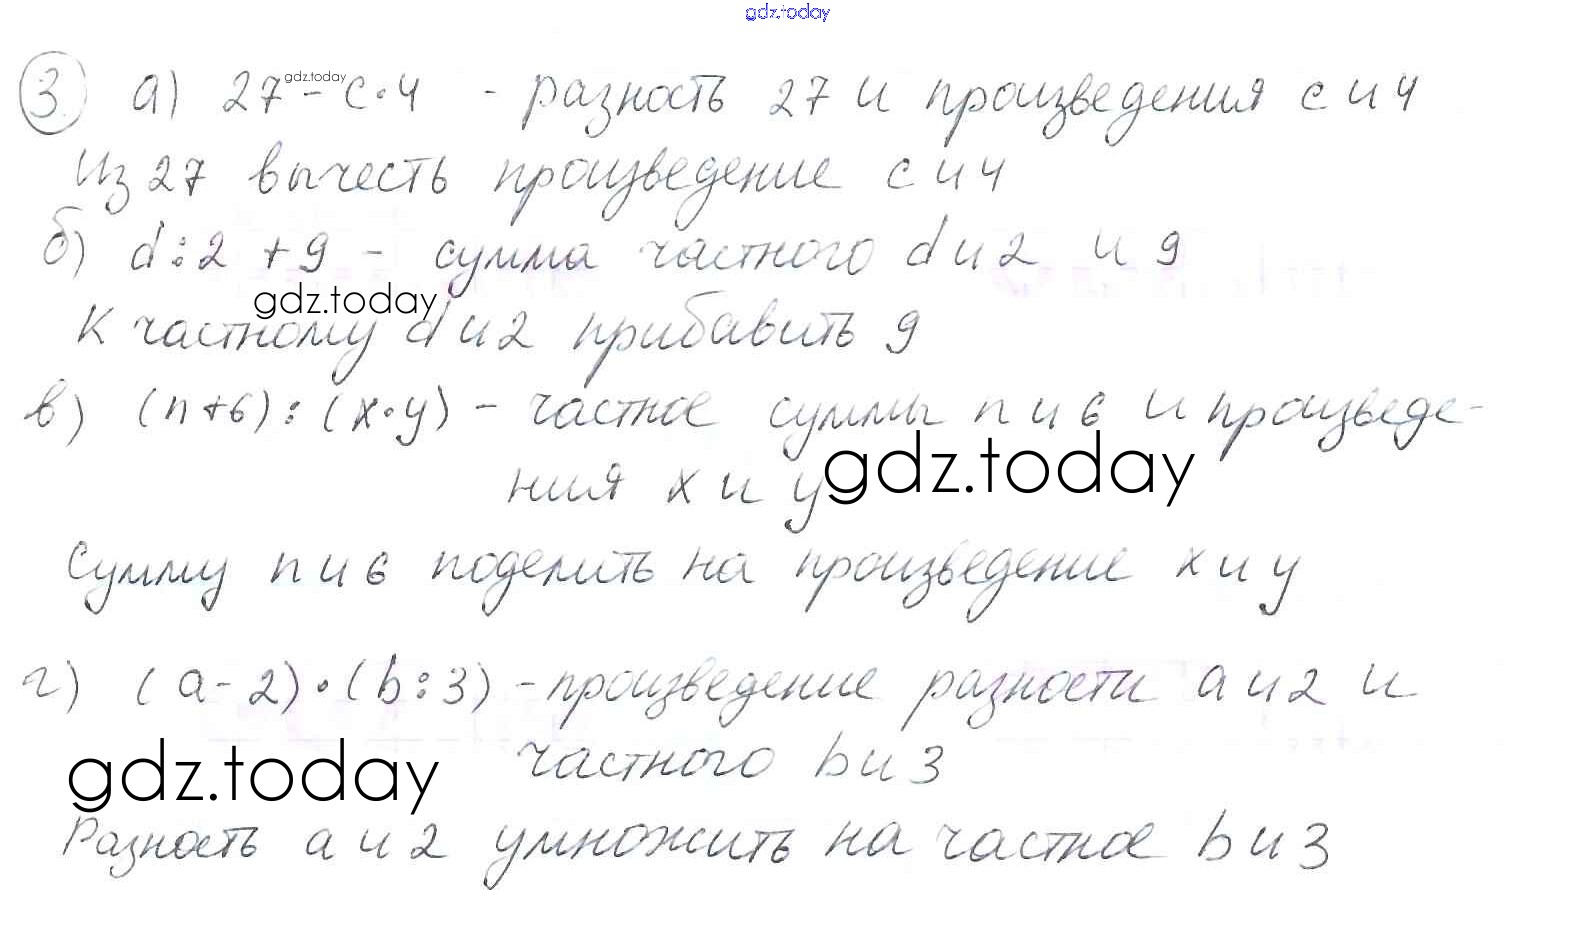 gdz.today
3. а) 27 - c·4 - разность 27 и произведения c и 4
gdz.today
Из 27 вычесть произведение c и 4
б) d:2 + 9 - сумма частного d и 2 и 9
gdz.today
К частному d и 2 прибавить 9
в) (n+6):(x·y) - частное суммы n и 6 и произведе-
ния x и y
gdz.today
Сумму n и 6 поделить на произведение x и y
г) (a-2)·(b:3) - произведение разности a и 2 и
частного b и 3
gdz.today
Разность a и 2 умножить на частное b и 3